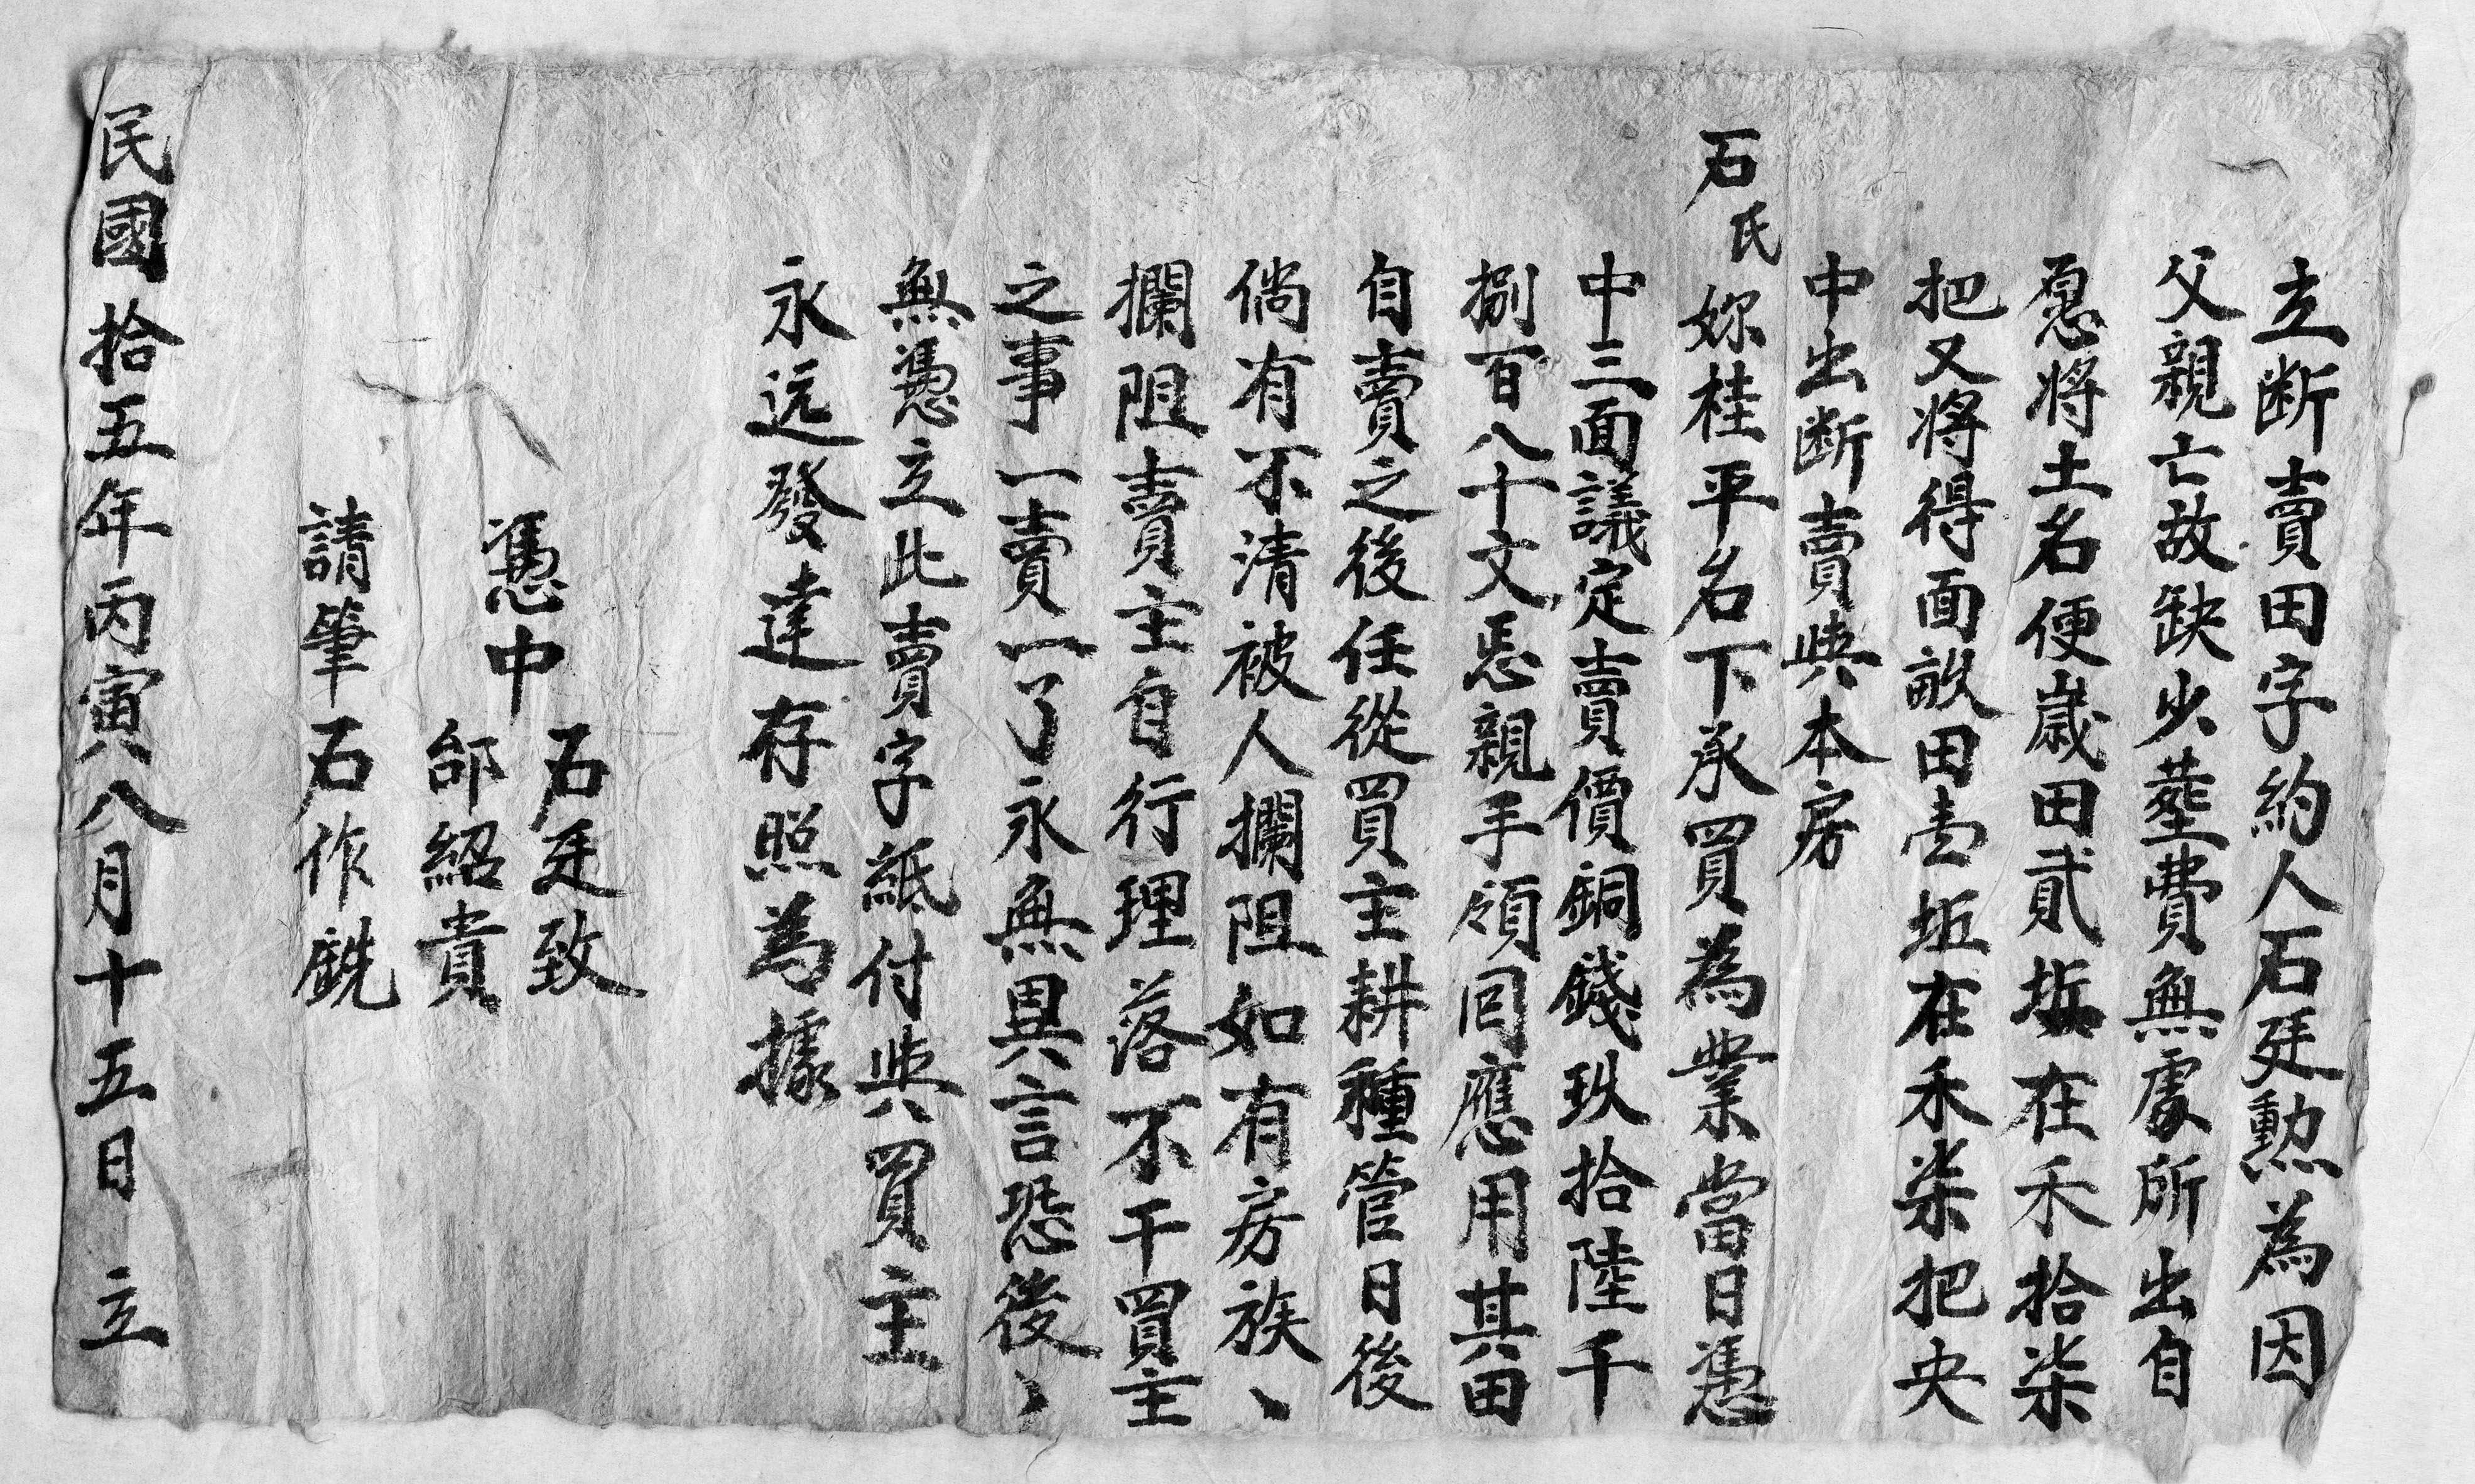 立断賣田字約人石廷勲為因
父親亡故缺少塟費無處所出自
愿将土名便歲田貳坵在禾拾柒
把又将得面畝田壹坵在禾柒把央
中出断賣與本房
石氏妳桂平名下承買為業當日憑
中三面議定賣價銅錢玖拾陸千
捌百八十文恁親手領囘應用其田
自賣之後任從買主耕種管日後
倘有不清被人攔阻如有房族丶
攔阻賣主自行理落不干買主
之事一賣一了永無異言恐後丶
無憑立此賣字紙付與買主
永远發達存照為據
憑中
石廷致
邰紹貴
請筆石作
民國拾五年丙寅八月十五日 立